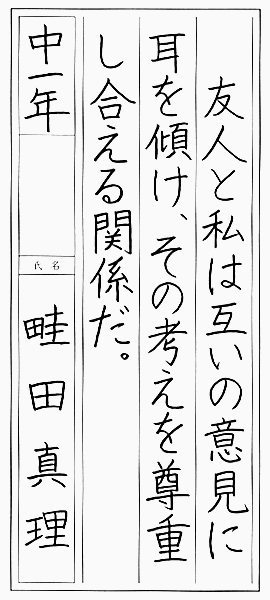 友人と私は互いの意見に
耳を傾け、その考えを尊重
し合える関係だ。
中一年
氏名
畦田真理